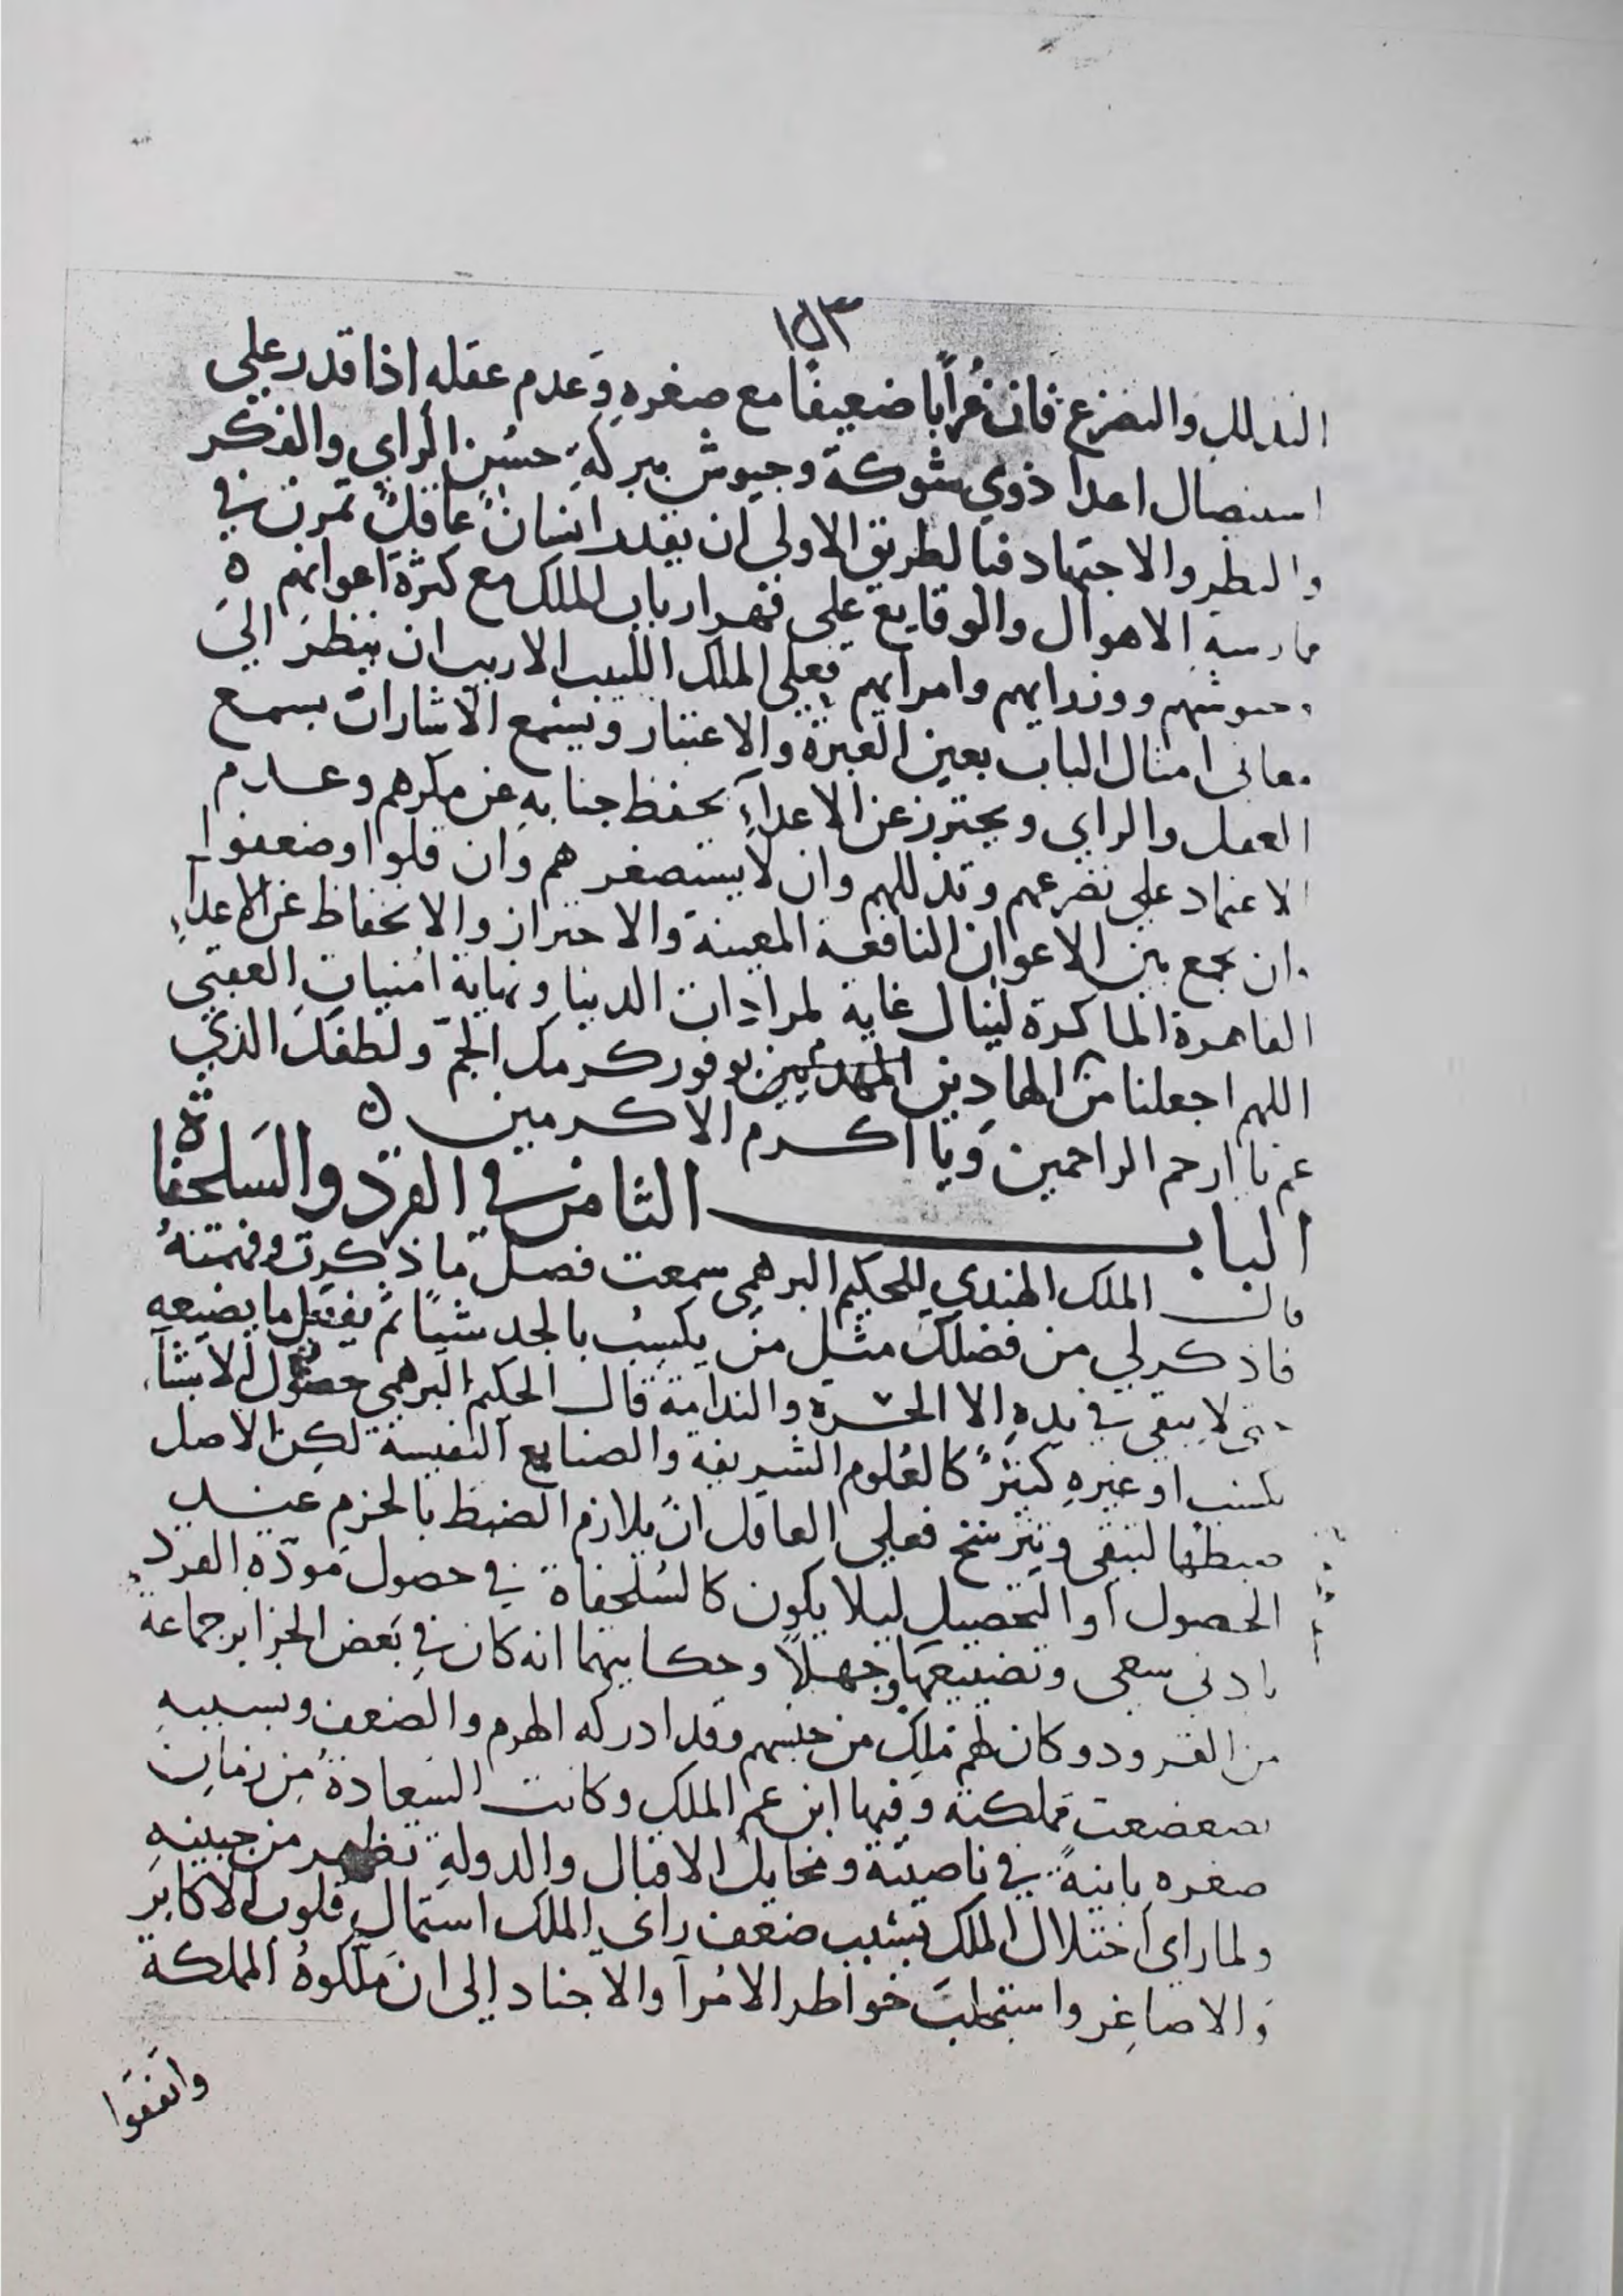 ١٥٣
التذلل والتضرع فان غُراباً ضعيفاً مع صغره وَعدم عقله اذا قدر علي
استيصال اعدا ذوي شوكة وجيوش ببركةِ حسُن الراي والفكر
والنظر والاجتهاد فبالطريق الاولي ان يقدر انسانٌ عاقلٌ تمرن في
ممارسة الاهوال والوقايع علي قهر ارباب الملك مع كثرة اعوانهم ٥
وجيوشهم ووزرايهم وامرايهم فعلي الملك اللبيب الاريب ان ينظرَ اليَ
معاني امثال الباب بعين العبرة والاعتبار ويسَمع الاشارات بسمع
العقل والراي ويحترز عن الاعداءِ بحفظ جنابهِ عن مكرهم وعدم
الاعتماد علي تضرعهم وتذللهم وان لا يستصغر هم وان قلوا او ضعفوا
وان يجمع بين الاعوان النافعة المعينة والاحتراز والانحفاظ عن الاعداءِ
القاهرة الماكرة لينال غاية لمرادات الدنيا ونهاية امنياتِ العقبَي
اللهم اجعلنا من الهادين المهديين بوفور كرمك الجمّ ولطفك الذي
عم يا ارحم الراحمين وَيا اكرم الاكرمين ٥
الباب الثامن في القرد والسَلحفاة
قال الملك الهندي للحكيم البرهمي سمعت فصل ما ذكرت وفهمتهُ
فاذكر لي من فضلكَ مثل من يكسِبُ بالجد شياً ثم يفعل ما يضيعه
حتي لا يبقي في يدهِ الا الحسَرة والندامة قال الحكيم البرهمي حصول الاشيآءِ
بكسب او غيرهِ كثيرٌ كالعُلوم الشريفة والصنايع النفيسة لكِن الاصل
ضبطها لتبقي ويترسَخ فعلي العاقل ان يلازم الضبط بالحزم عند
الحصول او التحصيل ليلا يكون كالسُلحفاة في حصول مَودّة القرد
بادني سعي وتضييعهَا جهلاً وحكايتهما انه كان في بَعض الجزاير جماعة
من القرود وكان لهم مَلِكٌ من جنسهم وقد ادركه الهرم والضعف وبسببهِ
تضعضعت مَملكته وفيها ابن عم الملك وكانت السَعادةُ مِن زمانِ
صغره باينةً في ناصيته ومخايل الاقبال والدولةِ تظهر من جبينهِ
ولما راي اختلال الملك بسَبب ضعف راي الملك استمال قلوب الاكابر
وَالاصاغِر واستجلبَ خواطر الامُرآ والاجناد الي ان مَلّكوهُ المملكة
واتفقوا